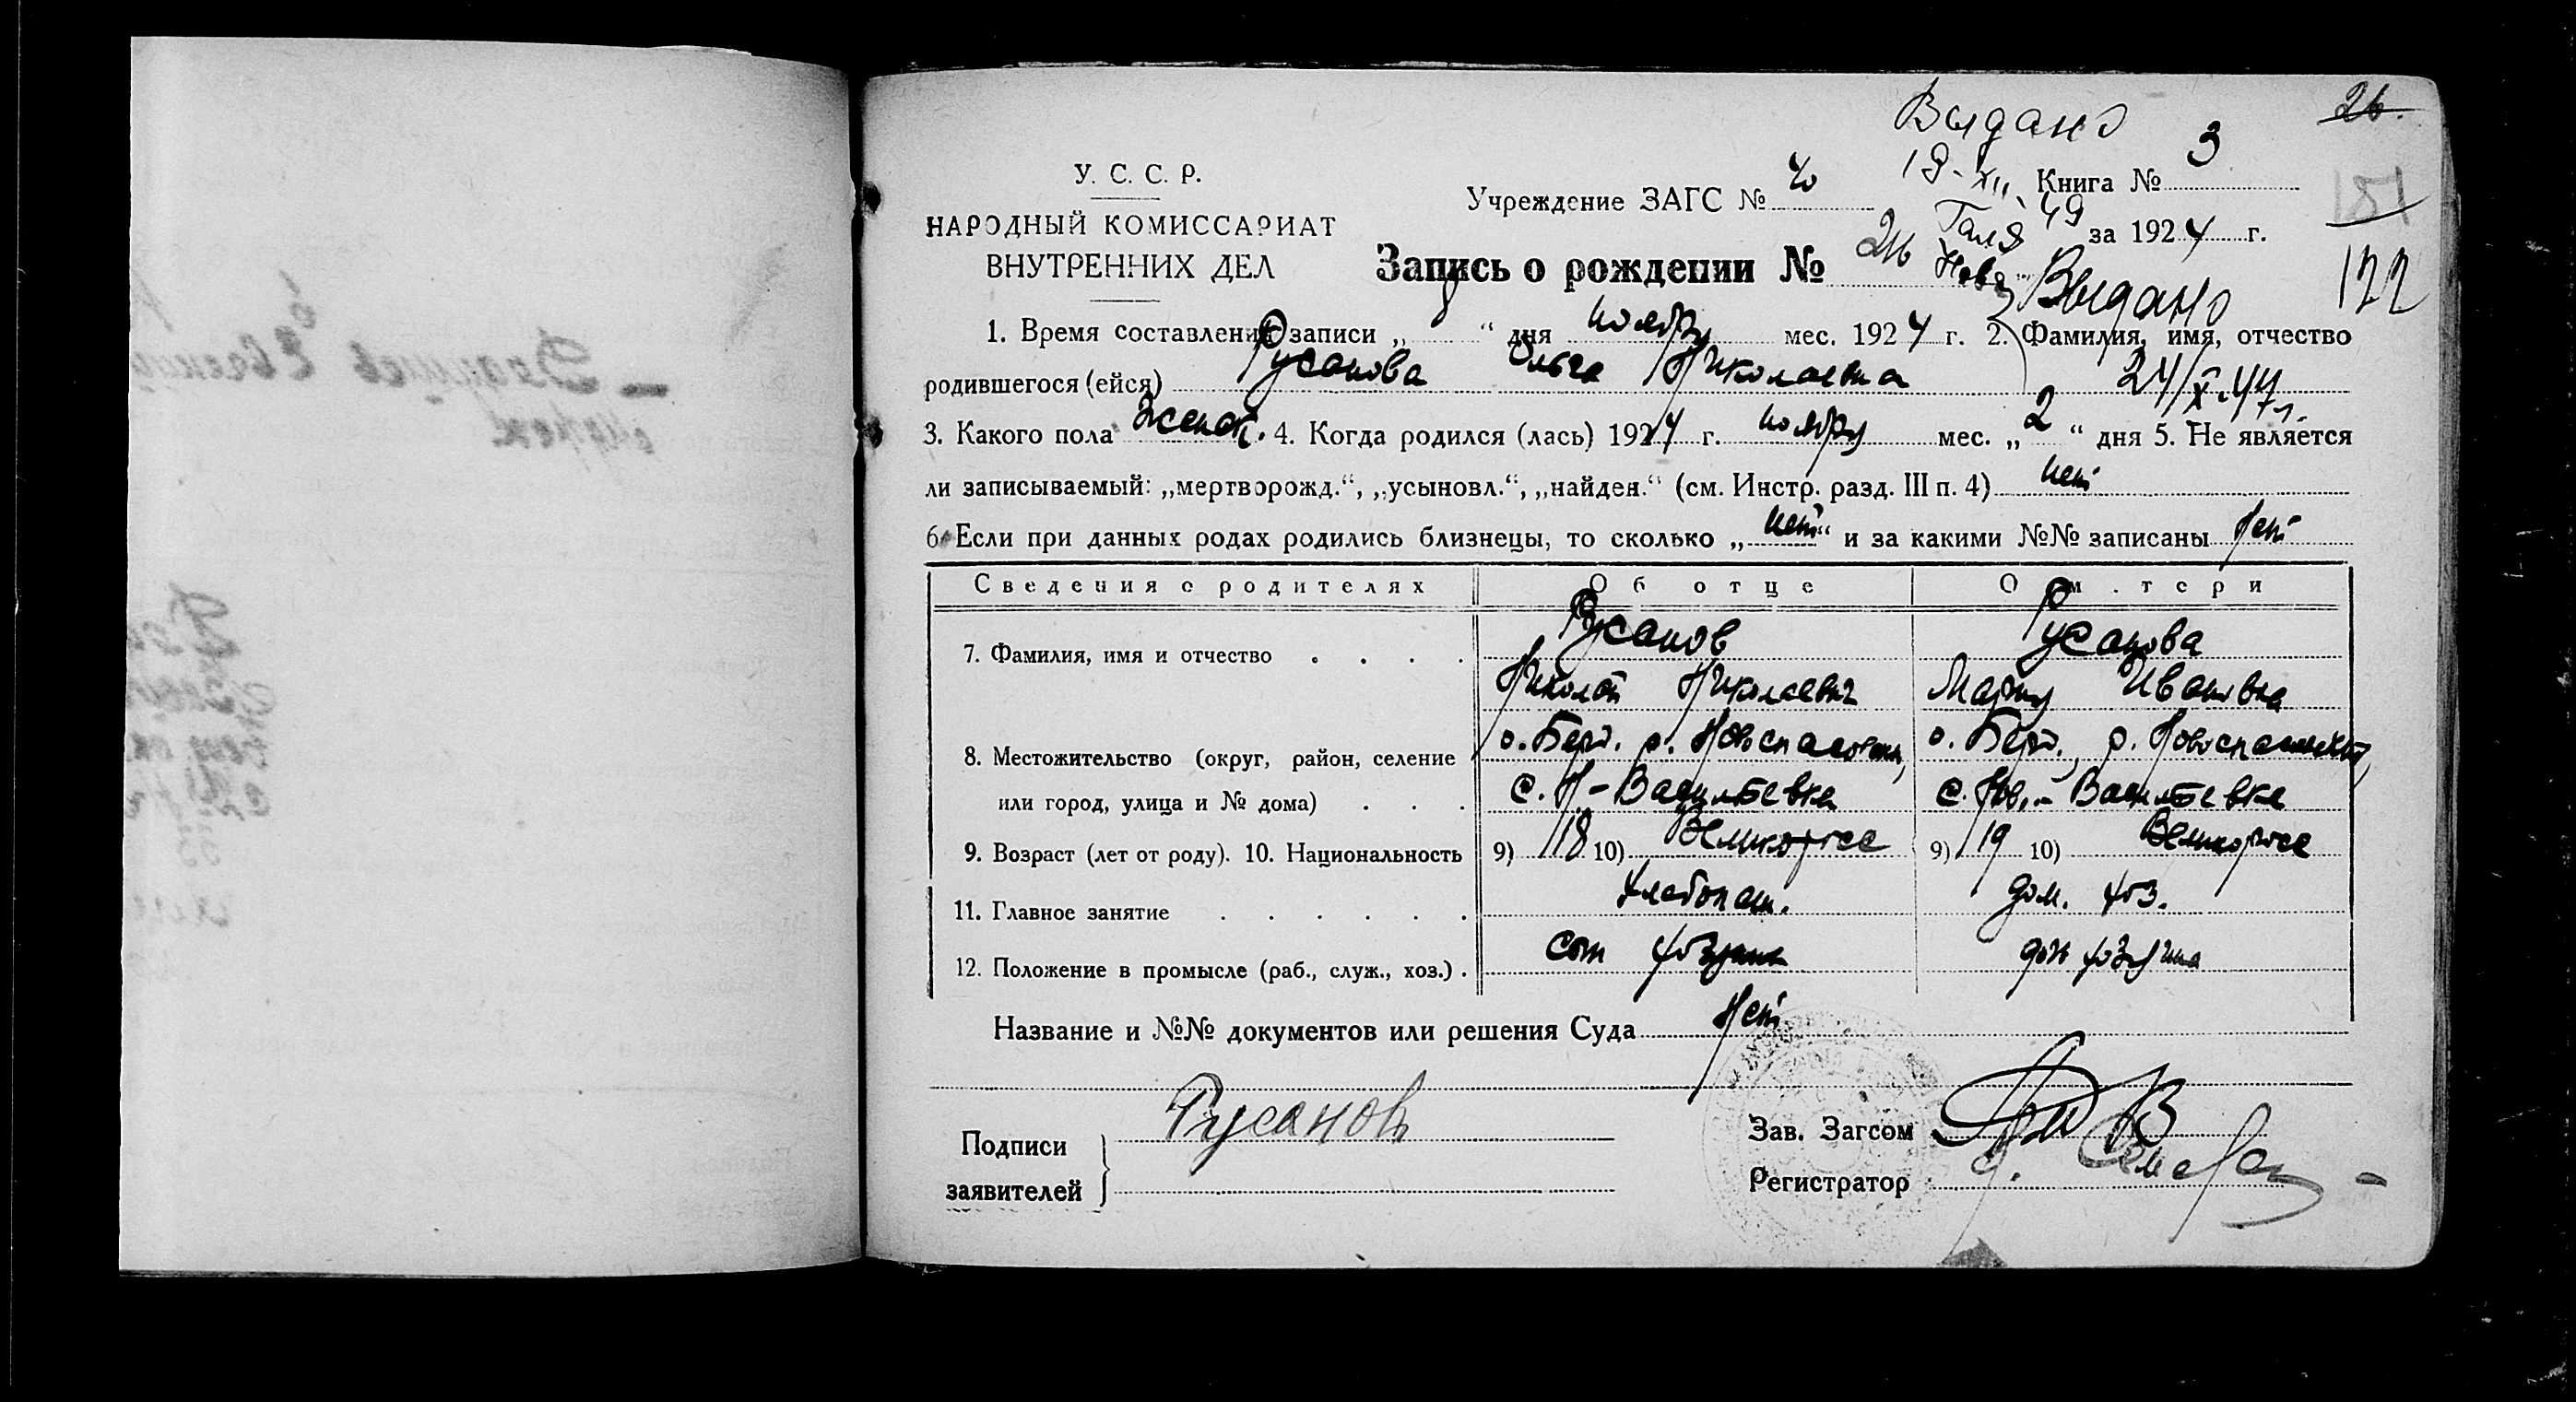 Выдано
26.
У. С. С. Р.
Учреждение ЗАГС № 40
19-XII 49
Книга № 3
181
НАРОДНЫЙ КОМИССАРИАТ
Галя
за 1924 г.
ВНУТРЕННИХ ДЕЛ
Запись о рождении № 26
Выдано
122
1. Время составления записи „8“ дня ноября мес. 1924 г. 2. Фамилия, имя, отчество
родившегося (ейся) Русанова Ольга Николаевна
24/X.44 г.
3. Какого пола женск. 4. Когда родился (лась) 1924 г. ноября мес. „2“ дня 5. Не является
ли записываемый: „мертворожд.“, „усыновл.“, „найден.“ (см. Инстр. разд. III п. 4) нет
6. Если при данных родах родились близнецы, то сколько „нет“ и за какими №№ записаны Нет
Сведения о родителях Об отце О м.тери
7. Фамилия, имя и отчество . . . . Русанов Русанова
Николай Николаевич Мария Ивановна
8. Местожительство (округ, район, селение о. Берд. р. Новоспасовский, о. Берд., р. Новоспасовский,
или город, улица и № дома) . . . с. Н-Васильевка с. Нов.-Васильевка
9. Возраст (лет от роду). 10. Национальность 9) 18 10) Великоросс 9) 19 10) Великоросс
11. Главное занятие . . . . . . хлебопаш. дом. хоз.
12. Положение в промысле (раб., служ., хоз.) . сын хозяина
Название и №№ документов или решения Суда Нет
Подписи Русанов
заявителей
Зав. Загсом
Регистратор